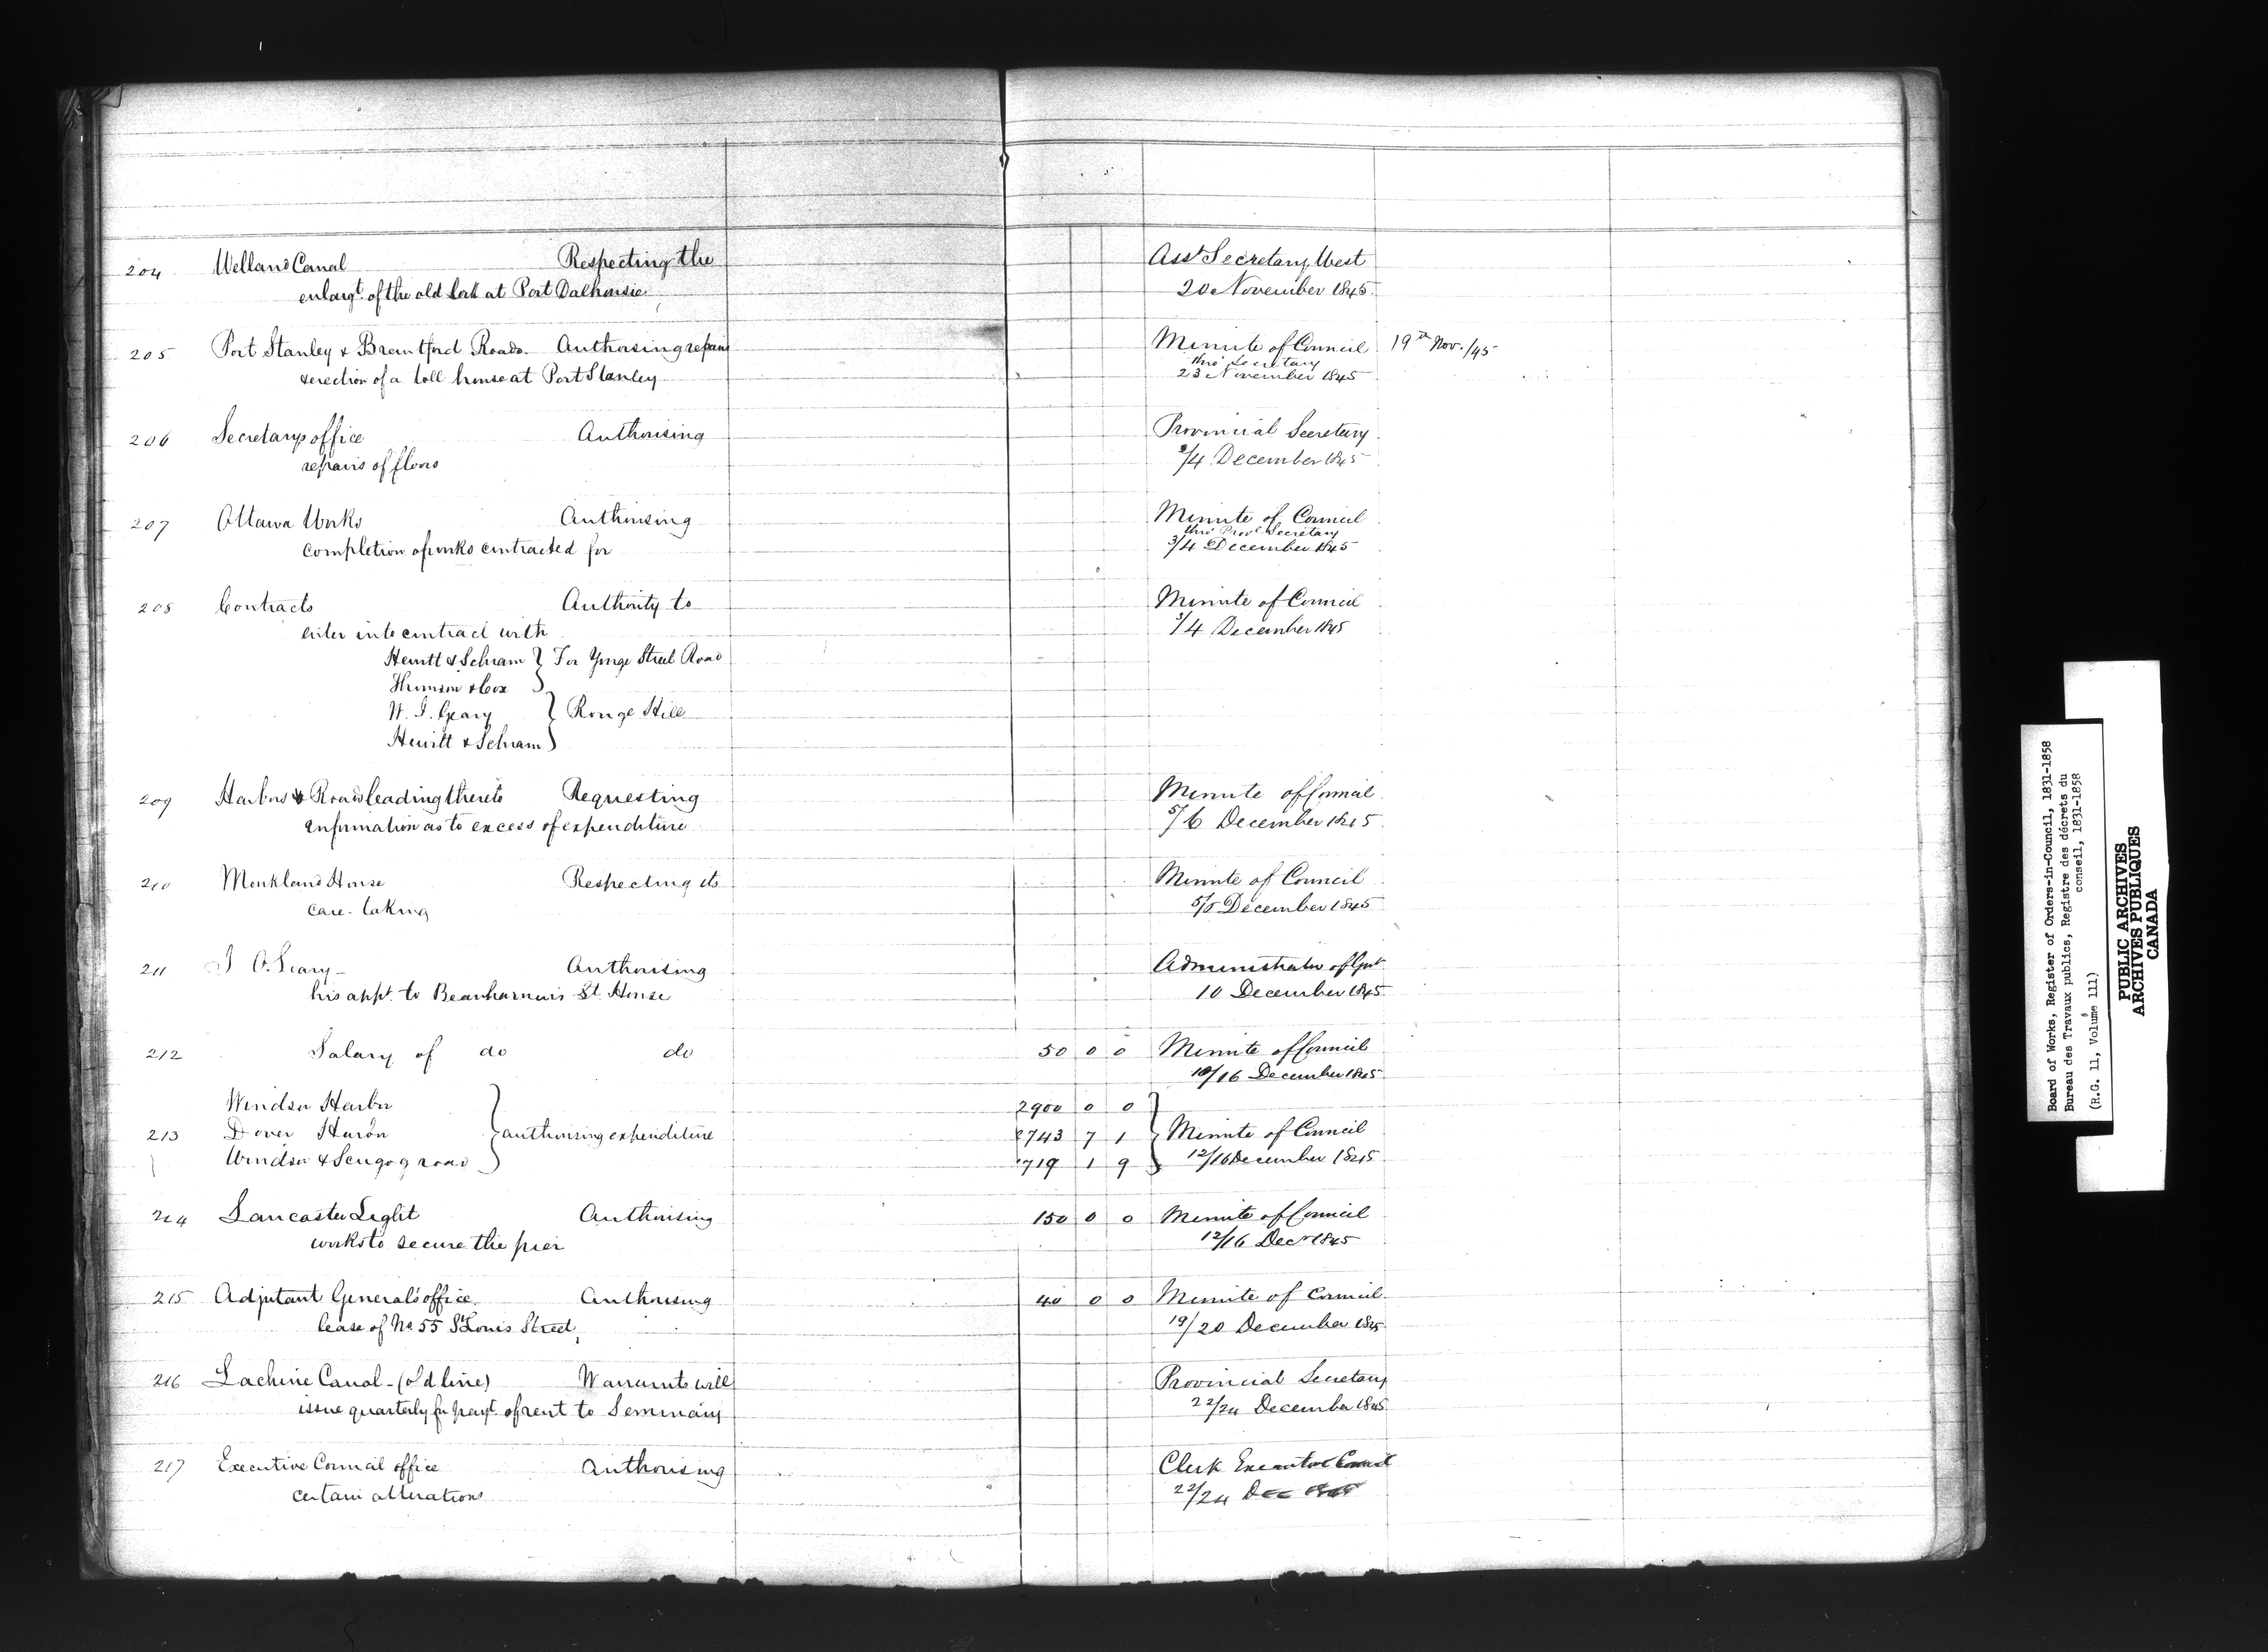 204 Welland Canal Respecting the Asst Secretary West
enlargt. of the old lock at Port Dalhousie 20 November 1845
205 Port Stanley & Brantford Roads. Authorising repairs Minute of Council 19th Nov./45
thro' Secretary
& erection of a toll house at Port Stanley 23 November 1845
206 Secretarys office Authorising Provincial Secretary
repairs of floors /4 December 1845
207 Ottawa Works Authorising Minute of Council
thro' Provl Secretary
completion of works contracted for 3/4 December 1845
208 Contracts Authority to Minute of Council
enter into contract with 3/4 December 1845
Hewitt & Schram } For Yonge Street Road
Thomson & Cox
Geary } Rouge Hill
Hewitt & Schram
209 Harbors & Roads leading thereto Requesting Minute of Council
information as to excess of expenditure 5/6 December 1845
210 Monkland House Respecting its Minute of Council
care-taking 5/5 December 1845
211 O.Leary Authorising Administrator of Govt
his appt. to Beauharnois St House 10 December 1845
212 Salary of do do 50 0 0 Minute of Council
10/16 December 1845
Windsor Harbor 2900 0 0
213 Dover Huron } authorising expenditure 743 7 1 } Minute of Council
Windsor & Scugog road 719 1 9 12/16 December 1845
214 Lancaster Light Authorising 150 0 0 Minute of Council
works to secure the pier 12/16 Decr 1845
215 Adjutant General's office Authorising 40 0 0 Minute of Council
lease of No 55 St Louis Street 19/20 December 1845
216 Lachine Canal - (old line) Warrants will Provincial Secretary
issue quarterly for payt. of rent to Seminary 22/24 December 1845
217 Executive Council office Authorising Clerk Executive Council
certain alterations 22/24 Dec 1845
Board of Works, Register of Orders-in-Council, 1831-1858
Bureau des Travaux publics, Registre des décrets du
conseil, 1831-1858
(R.G. 11, Volume 111)
PUBLIC ARCHIVES
ARCHIVES PUBLIQUES
CANADA